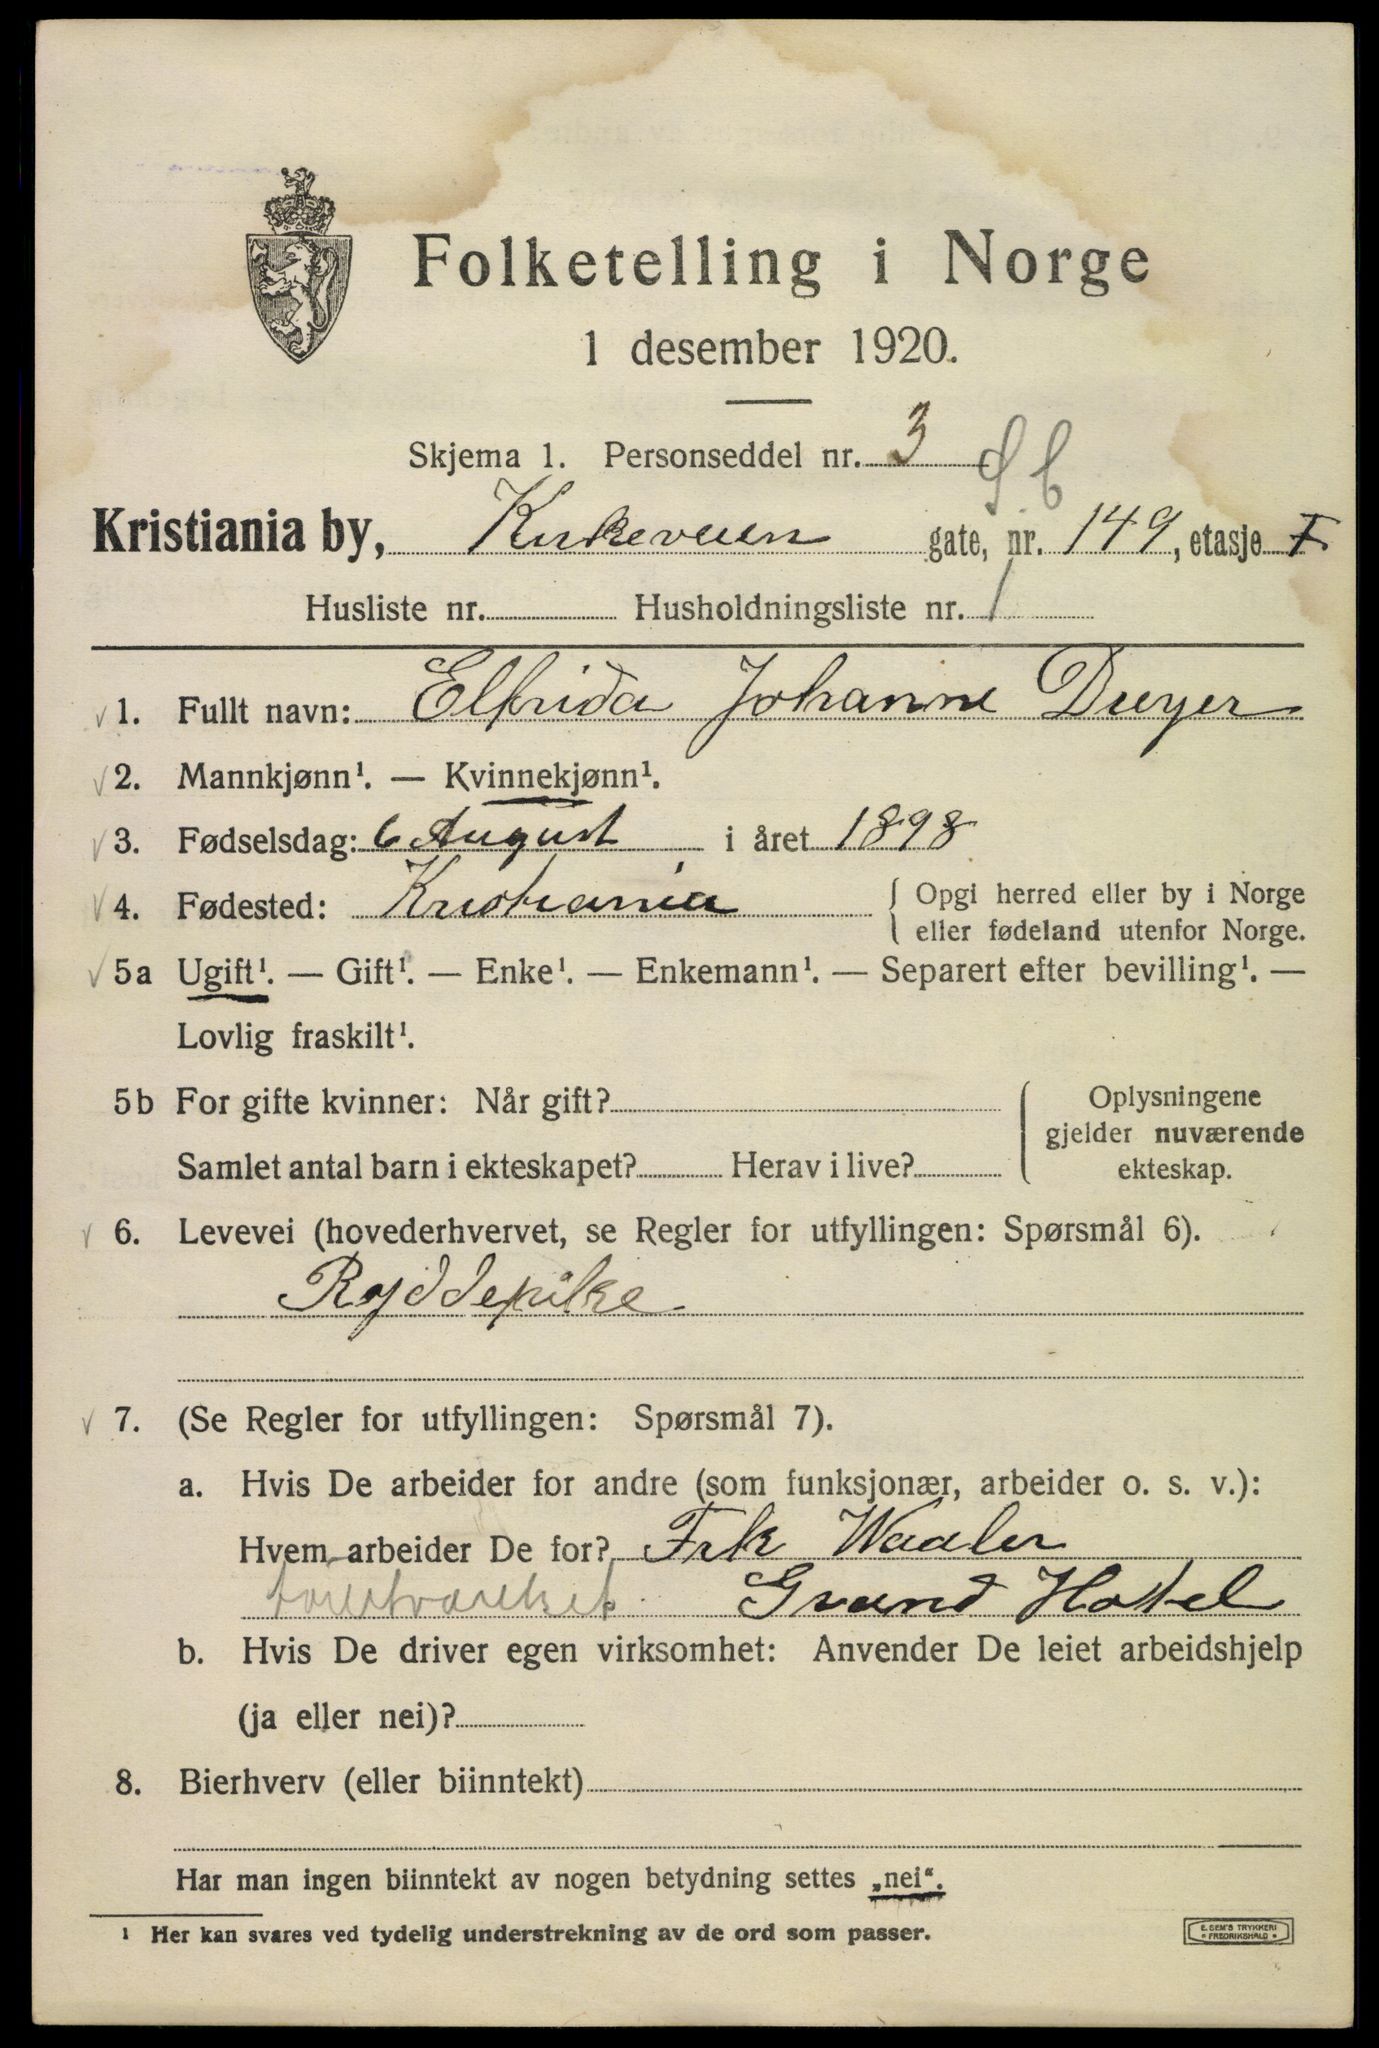 Folketelling i Norge
1 desember 1920.
Skjema 1. Personseddel nr. 3
Kristiania by, Kirkeveien gate, nr. 149, etasje I
Husliste nr. Husholdningsliste nr. 1
1. Fullt navn: Elfrida Johanne Dreyer
2. Mannkjønn¹. — Kvinnekjønn¹.
3. Fødselsdag: 6 August i året 1898
4. Fødested: Kristiania { Opgi herred eller by i Norge
eller fødeland utenfor Norge.
5a Ugift¹. — Gift¹. — Enke¹. — Enkemann¹. — Separert efter bevilling¹. —
Lovlig fraskilt¹.
5b For gifte kvinner: Når gift? { Oplysningene
gjelder nuværende
Samlet antal barn i ekteskapet? Herav i live? ekteskap.
6. Levevei (hovederhvervet, se Regler for utfyllingen: Spørsmål 6).
Ryddepike
7. (Se Regler for utfyllingen: Spørsmål 7).
a. Hvis De arbeider for andre (som funksjonær, arbeider o. s. v.):
Hvem arbeider De for? Frk Waaler
Grand Hotel
b. Hvis De driver egen virksomhet: Anvender De leiet arbeidshjelp
(ja eller nei)?
8. Bierhverv (eller biinntekt)
Har man ingen biinntekt av nogen betydning settes „nei“.
¹ Her kan svares ved tydelig understrekning av de ord som passer.
E. SEM'S TRYKKERI
• FREDRIKSHALD •